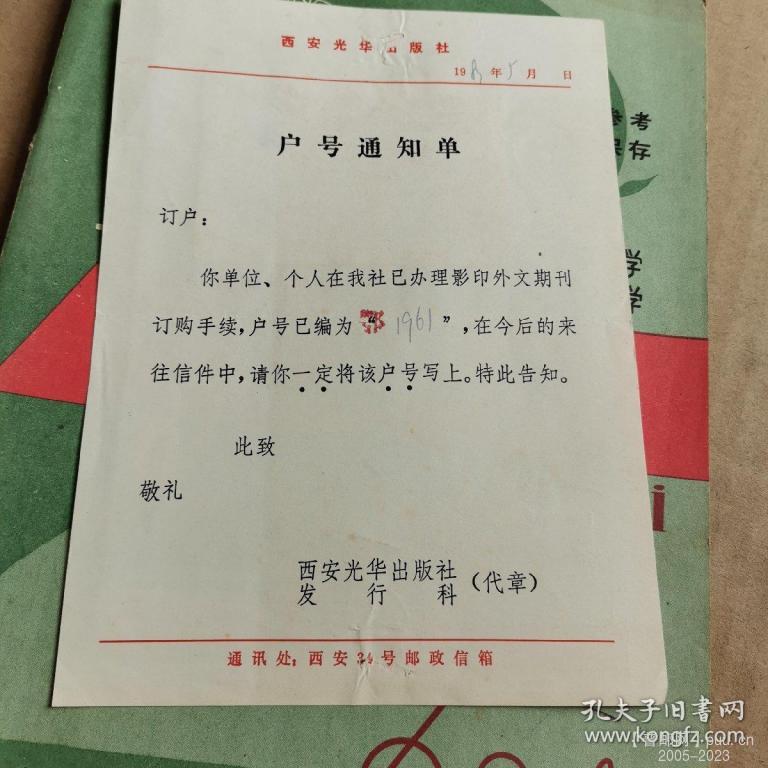 西安光华出版社
19 年5月 日
户号通知单
订户：
你单位、个人在我社已办理影印外文期刊
订购手续，户号已编为“鄂1961”，在今后的来
往信件中，请你一定将该户号写上。特此告知。
此致
敬礼
西安光华出版社
发行科（代章）
通讯处：西安34号邮政信箱
参考
保存
学
学
i
孔夫子旧书网
www.kongfz.com
2005-2023